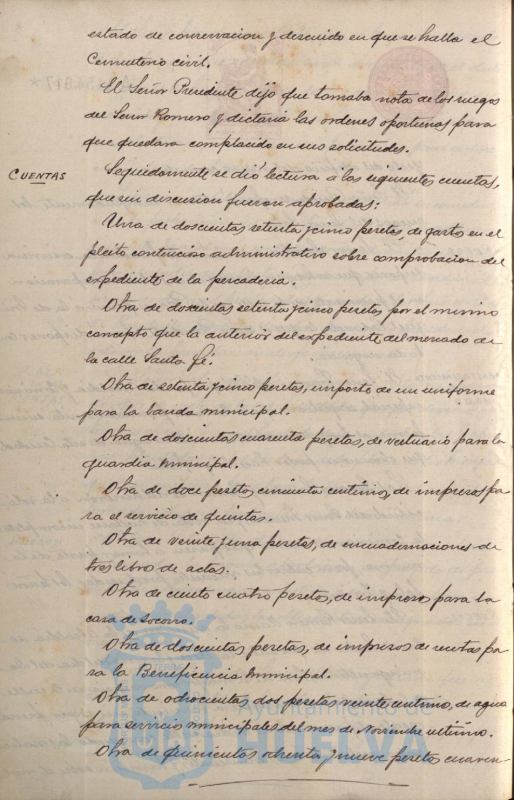 estado de conservacion y descuido en que se halla el
Cementerio civil.
El Señor Presidente dijo que tomaba nota de los ruegos
del Señor Romero y dictaria las ordenes oportunas para
que quedara complacido en sus solicitudes.
CUENTAS
Seguidamente se dió lectura a las siguientes cuentas,
que sin discusion fueron aprobadas:
Una de doscientas setenta y cinco pesetas, de gastos en el
pleito contencioso administrativo sobre comprobacion del
expediente de la pescaderia.
Otra de doscientas setenta y cinco pesetas por el mismo
concepto que la anterior del expediente del mercado de
la calle Santa Fé.
Otra de setenta y cinco pesetas, importe de un uniforme
para la banda municipal.
Otra de doscientas cuarenta pesetas, de vestuario para la
guardia municipal.
Otra de doce pesetas cincuenta centimos, de impresos pa-
ra el servicio de quintas.
Otra de veinte y una pesetas, de encuadernaciones de
tres libro de actas.
Otra de ciento cuatro pesetas, de impresos para la
casa de Socorro.
Otra de doscientas pesetas, de impresos de recetas pa-
ra la Beneficencia municipal.
Otra de ochocientas dos pesetas veinte centimos, de agua
para servicios municipales del mes de Noviembre ultimo.
Otra de quinientas ochenta y nueve pesetas cuaren-
Ayuntamiento de
HUELVA